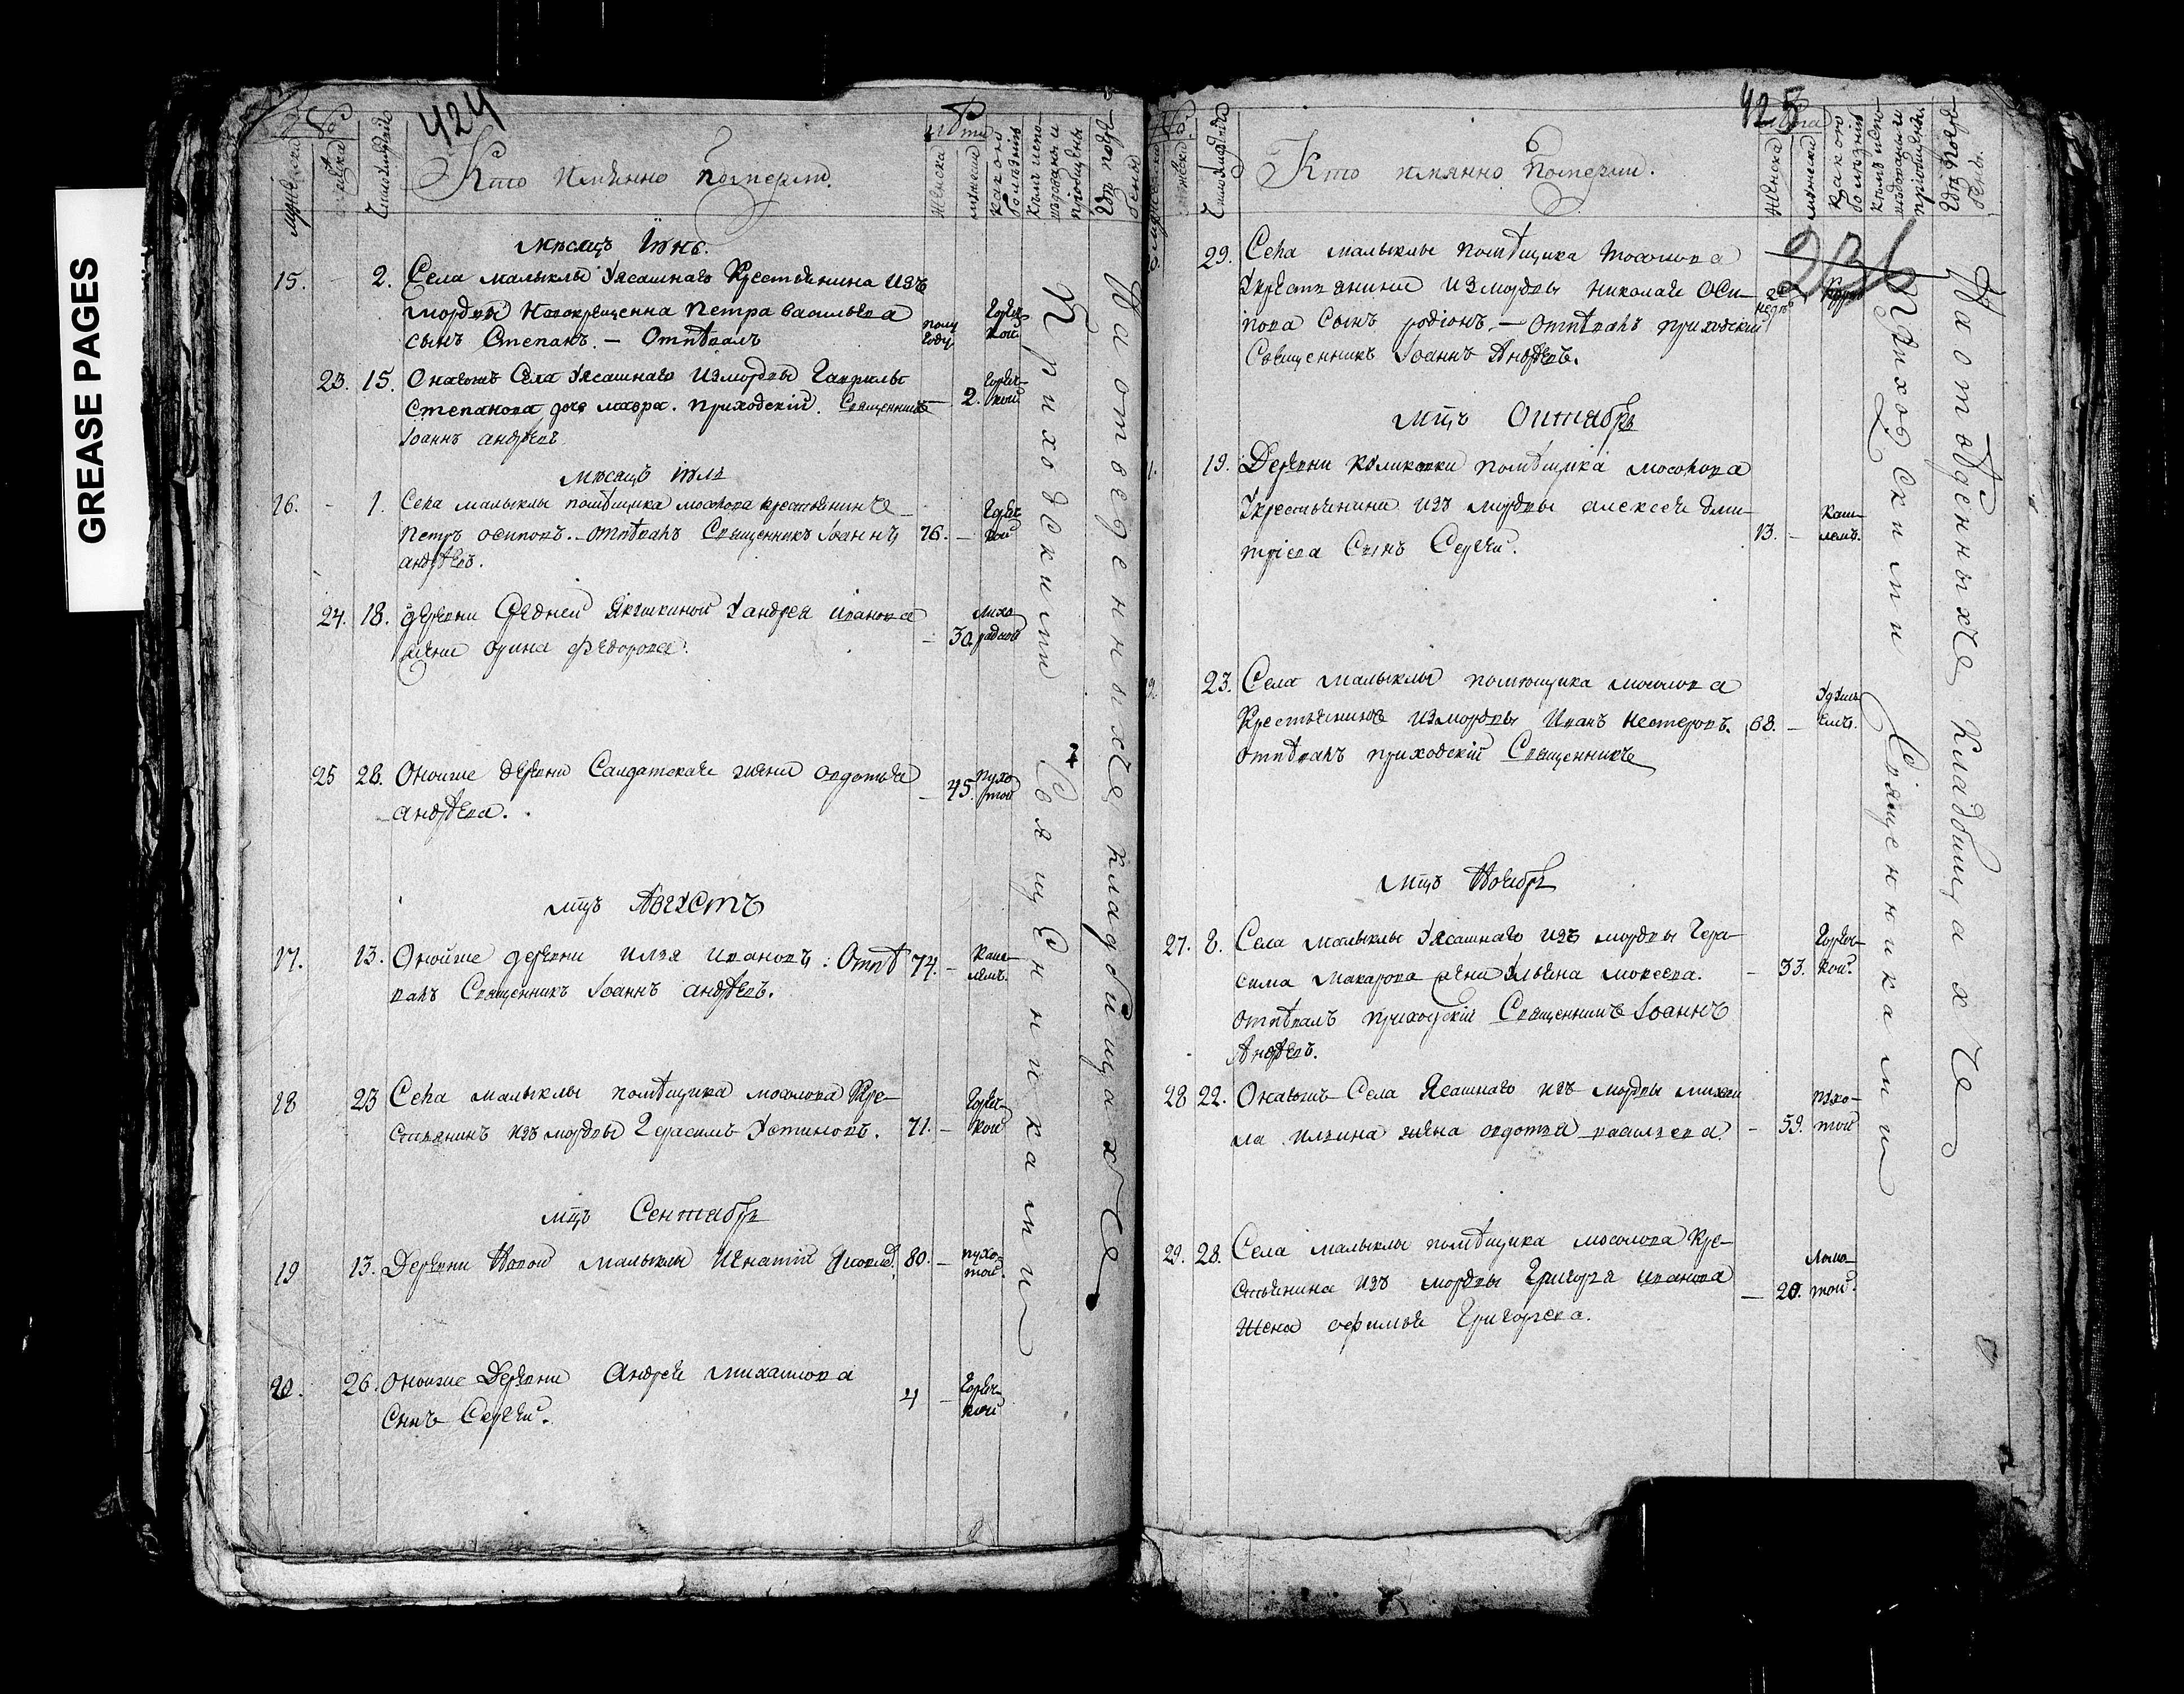 GREASE PAGES
424
№
Кто имянно померли.
лѣта
женска
какою болѣзнію
мѣсяцъ Іюнь.
15. 2. Села малыклы Уясашнаго Крестьянина изъ
мордвы Новокрещенна Петра васильева
сынъ Степанъ. — Отпѣвалъ
полу году
горяч-
кой
23. 15. Онагожъ Села Уясашнаго Измордвы Гаврилы
Степанова дочь мавра. приходскій. Священникъ
Іоаннъ андрѣевъ
2.
горяч-
кой
мѣсяцъ Іюль
16. - 1. Села малыклы помѣщика мосолова крестьянинъ
Петръ осиповъ. — отпѣвалъ Священникъ Іоаннъ
андрѣевъ.
76. —
горяч
кой
24. 18. деревни Средней Якушкиной Уандрея иванова
жена орина федорова.
— 30.
лихо
радкой
25 28. Оноиже деревни Салдатская жена авдотья
андрѣева.
— 45.
сухо
той
мц҃ъ Августъ
17. 13. Оноиже деревни илья ивановъ: Отпѣ
валъ Священникъ Іоаннъ андрѣевъ.
74. —
каш-
лемъ.
18 23 Села малыклы помѣщика мосолова Кре-
стьянинъ изъ мордвы Герасимъ Устиновъ.
71. —
горяч-
кой
мц҃ъ Сентябрь
19 13. Деревни Новой малыклы Игнатій
80. —
сухо-
той.
20. 26. Оноиже Деревни Андрея михайлова
Сынъ Сергѣй.
4 —
горяч-
кой
Приходскими Священниками
На отведенныхъ кладбищахъ
425
№.
Кто имянно Померли.
женска
какою болѣзнію
236
29. Села малыклы помѣщика мосолова
Укрестьянина Измордвы николая Оси-
пова Сынъ родіонъ. — отпѣвалъ приходскій
Священникъ Іоаннъ Андрѣевъ.
мц҃ъ Октябрь
19. Деревни Куликовки помѣщика мосолова
Укрестьянина изъ мордвы алексея дми-
тріева Сынъ Сергѣй.
13. —
каш-
лемъ.
23. Села малыклы помющика мосолова
Крестьянинъ Измордвы Иванъ Нестеровъ.
отпѣвалъ приходскій Священникъ
68. —
Удушь
емъ.
мц҃ъ Ноябрь
27. 8. Села малыклы Уясашнаго изъ мордвы Гера-
сима макарова жена Ульяна мокеева.
отпѣвалъ приходскій Священникъ Іоаннъ
Андрѣевъ.
— 33.
горяч-
кой.
28 22. Онагожъ Села Ясашнаго изъ мордвы михаи
ла ильина жена авдотья васильева.
— 59.
сухо-
той
29. 28. Села малыклы помѣщика мосолова Кре-
стьянина изъ мордвы Григорья иванова
Жена афимья Григорьева.
— 20.
ломо-
той.
Приходскими Священниками
На отведенныхъ Кладбищахъ